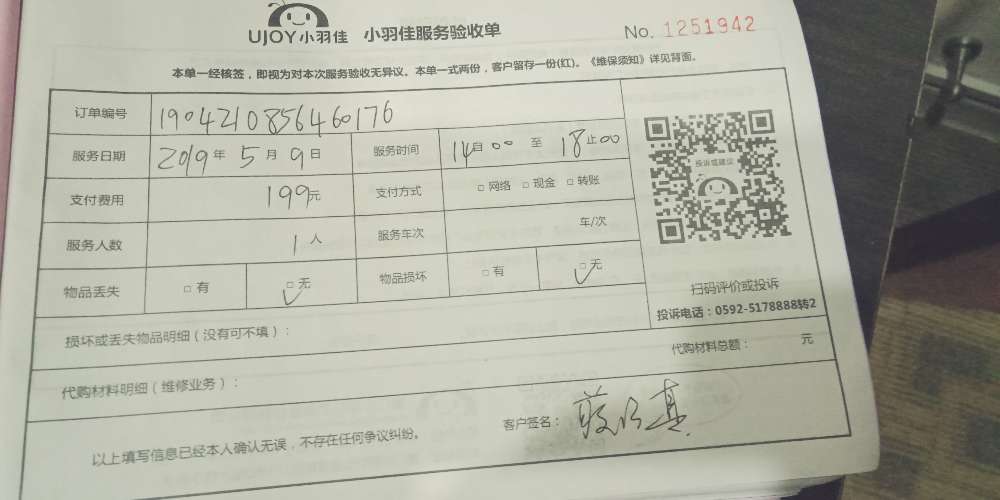 UJOY小羽佳 小羽佳服务验收单 No. 1251942
本单一经核签，即视为对本次服务验收无异议。本单一式两份，客户留存一份(红)。《维保须知》详见背面。
订单编号 1904210856460176
服务日期 2019年 5月 9日 服务时间 14自00 至 18止00
支付费用 199元 支付方式 □网络 □现金 □转账
服务人数 1人 服务车次 车/次
物品丢失 □有 □无 物品损坏 □有 □无
投诉或建议
扫码评价或投诉
投诉电话：0592-5178888转2
损坏或丢失物品明细（没有可不填）：
代购材料总额： 元
代购材料明细（维修业务）：
以上填写信息已经本人确认无误，不存在任何争议纠纷。 客户签名：